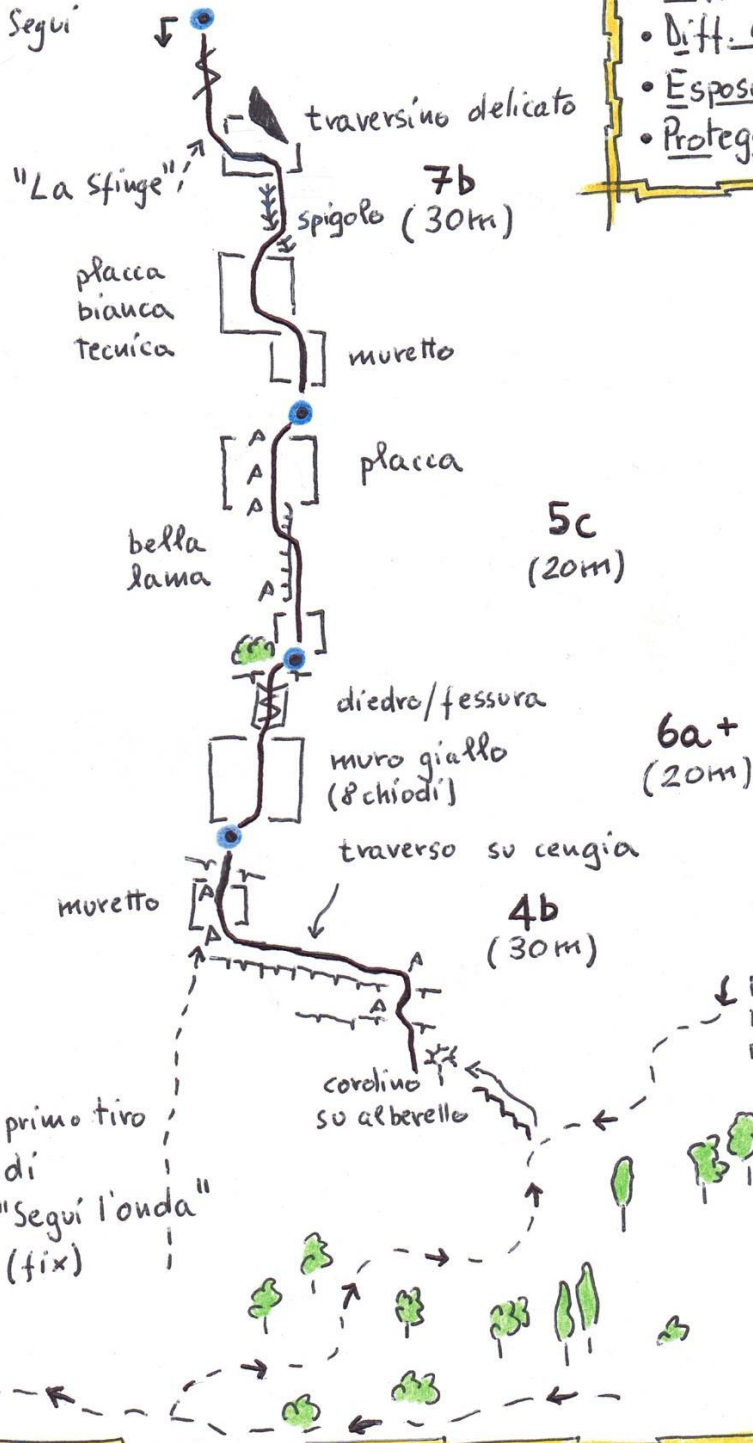 Segui
• Diff.
• Espos
• Proteg
traversino delicato
"La Sfinge"
7b
(30m)
spigolo
placca
bianca
tecnica
muretto
placca
5c
(20m)
bella
lama
diedro/fessura
6a+
(20m)
muro giallo
(8 chiodi)
traverso su cengia
muretto
4b
(30m)
cordino
su alberello
primo tiro
di
"Segui l'onda"
(fix)